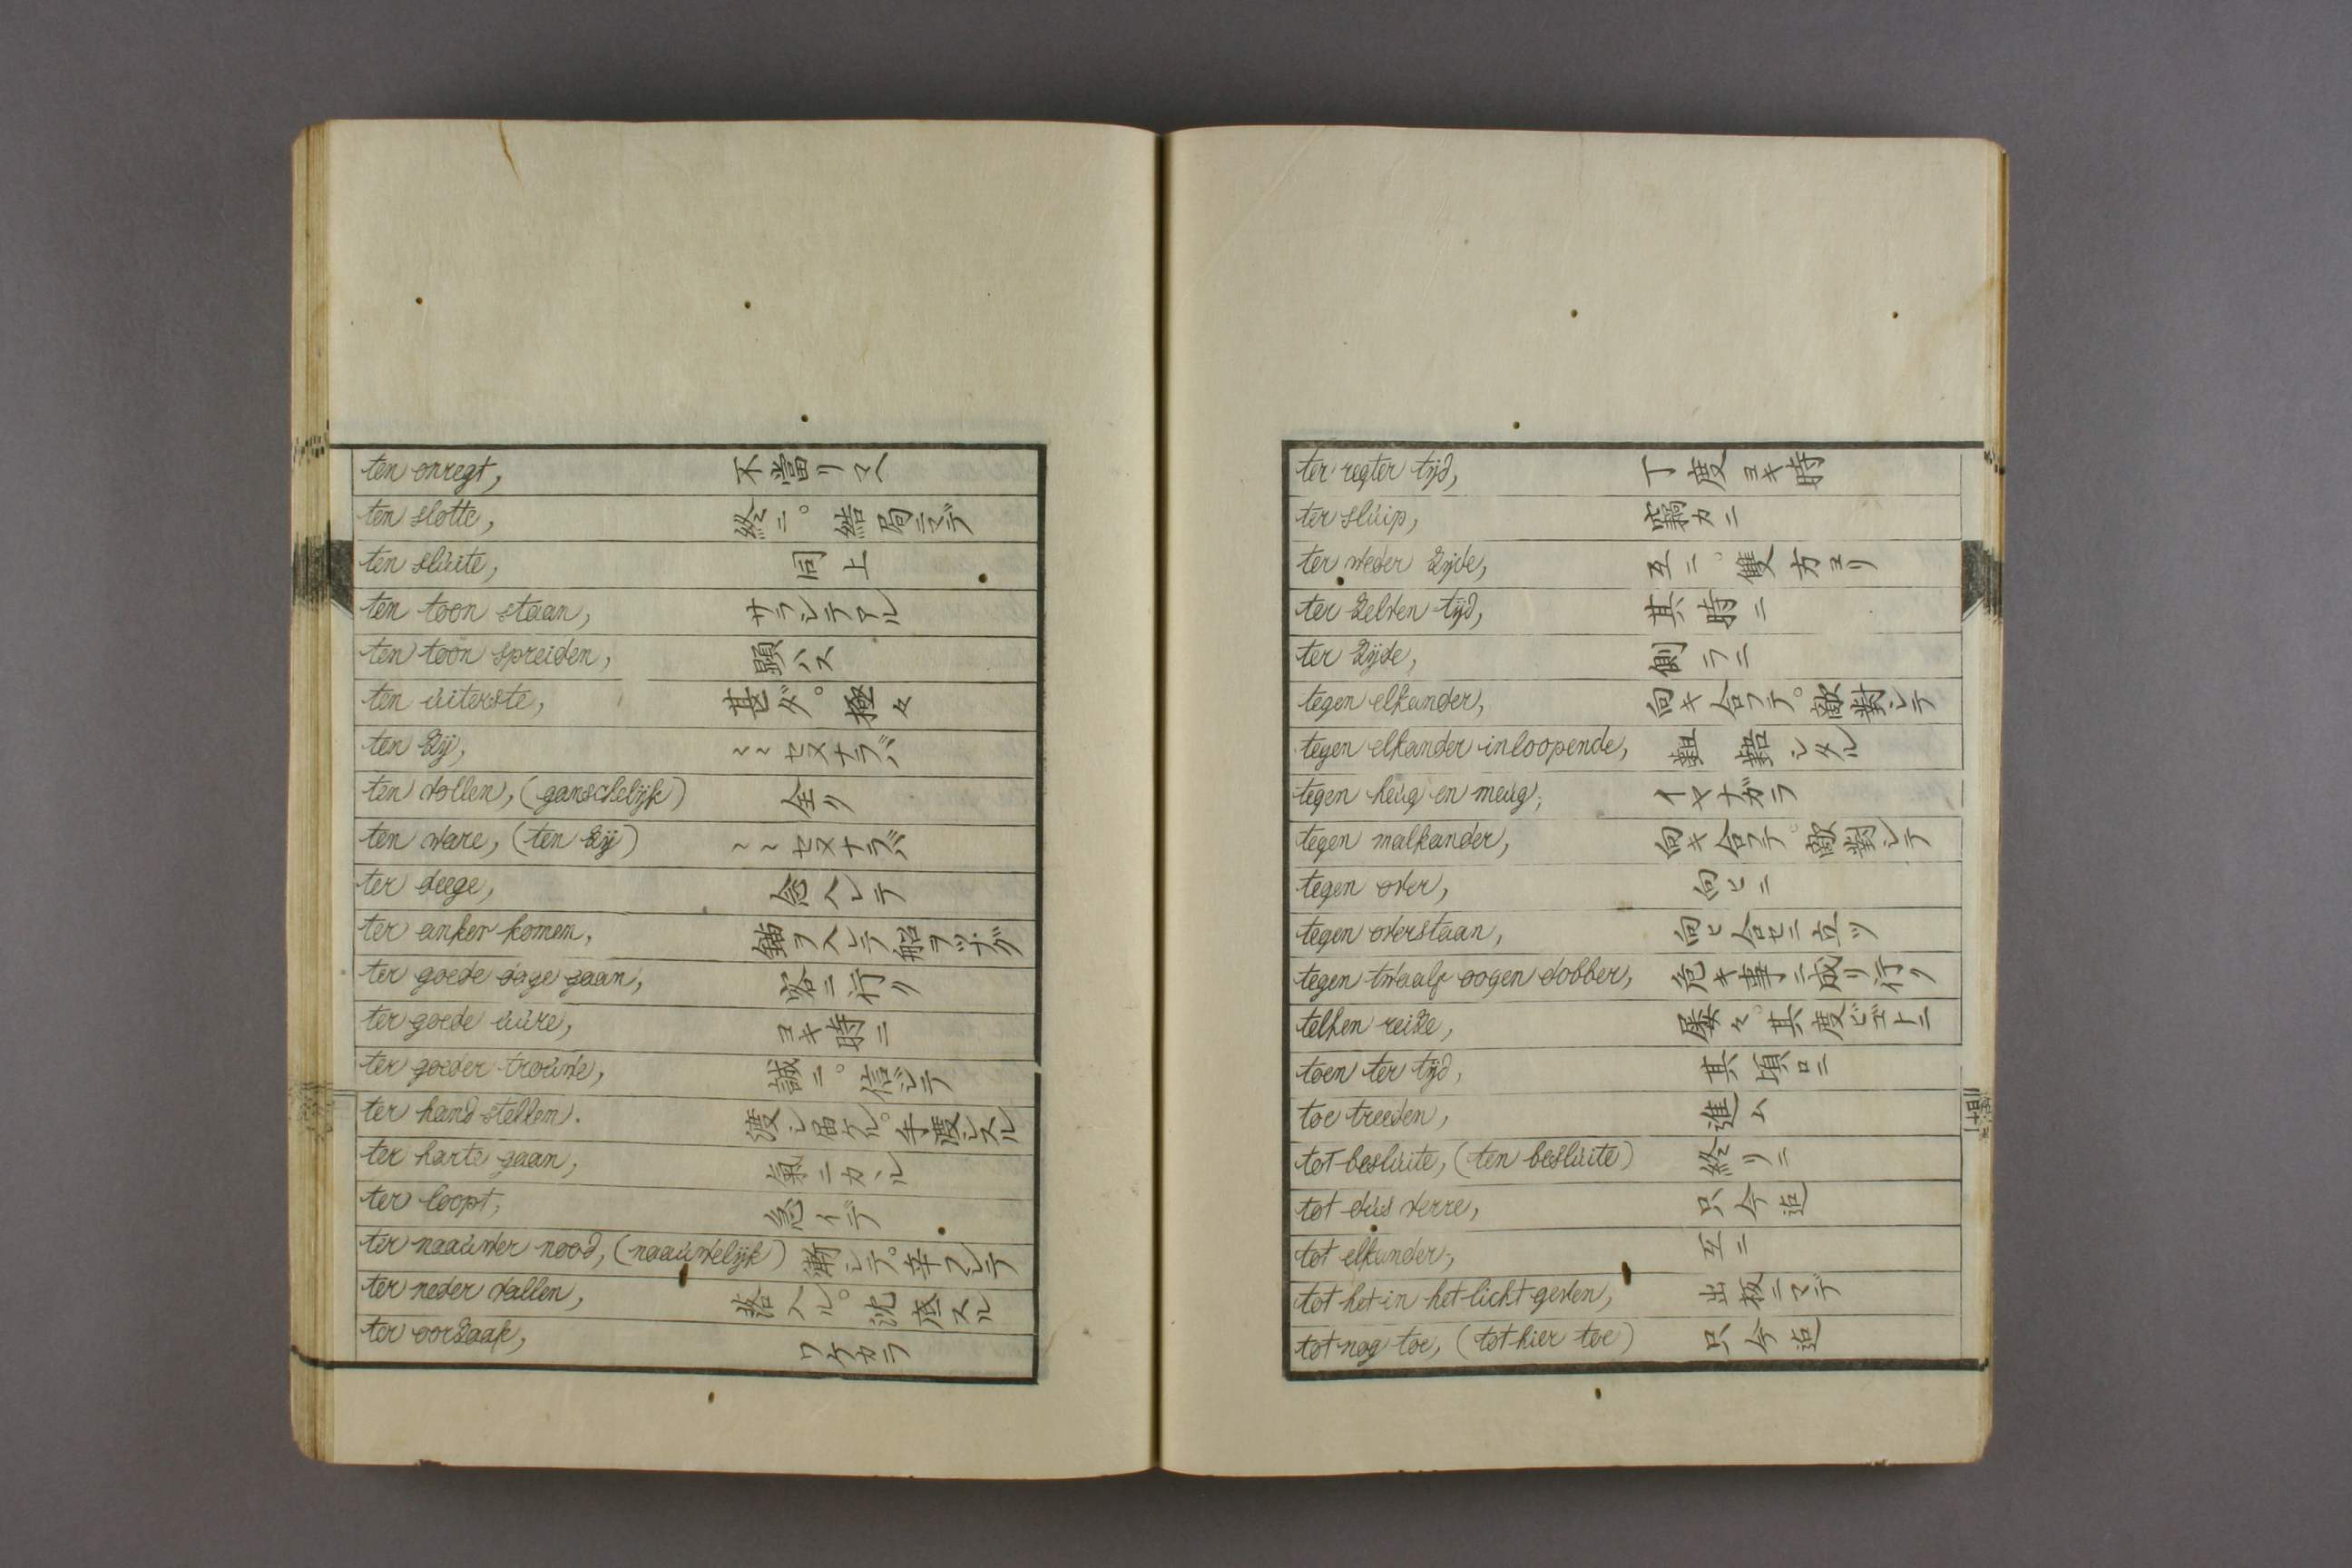 ten onregt, 不當リマヘ
ten slotte, 終ニ。結局ニマデ
ten sluite, 同上
ten toon staan, サラシテアル
ten toon spreiden, 顕ハス
ten uiterste, 甚ダ。極々
ten zij, 〜〜セヌナラバ
ten vollen, (ganschelijk) 全ク
ten ware, (ten zij) 〜〜セヌナラバ
ter deege, 念入レテ
ter anker komen, 錨ヲ入レテ船ヲツナグ
ter goede dage gaan, 客ニ行ク
ter goede uure, ヨキ時ニ
ter goeder trouwe, 誠ニ。信ジテ
ter hand stellen. 渡シ届ケル。手渡シスル
ter harte gaan, 氣ニカヽル
ter loopt, 急イデ
ter naauwer nood, (naauwelijk) 漸シテ。辛フシテ
ter neder vallen, 落入ル。沈底スル
ter oorzaak, ワケカラ
ter regter tijd, 丁度ヨキ時
ter sluip, 竊カニ
ter weder zijde, 互ニ。雙方ヨリ
ter zelven tijd, 其時ニ
ter zijde, 側ラニ
tegen elkander, 向キ合フテ。敵對シテ
tegen elkander inloopende, 齟齬シタル
tegen heug en meug, イヤナガラ
tegen malkander, 向キ合フテ。敵對シテ
tegen over, 向ヒニ
tegen overstaan, 向ヒ合セニ立ツ
tegen twaalf oogen dobber, 危キ事ニ成リ行ク
telken reize, 屡々。其度ビゴトニ
toen ter tijd, 其頃ロニ
toe treeden, 進ム
tot besluite, (ten besluite) 終リニ
tot dus verre, 只今迠
tot elkander, 互ニ
tot het in het licht geven, 出板ニマデ
tot nog toe, (tot hier toe) 只今迠